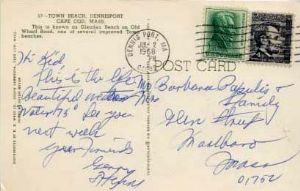 17 - TOWN BEACH, DENNISPORT
CAPE COD, MASS.
This is known as Glendon Beach on Old
Wharf Road, one of several improved Town
beaches.
DENNIS PORT, MA.
1968
POST CARD
Hi Kid,
This is the
Beautiful
Water 75° See you
next week
your friends
Gerry
Barbara
& Family
Glen Street
Marlboro
Mass
01752